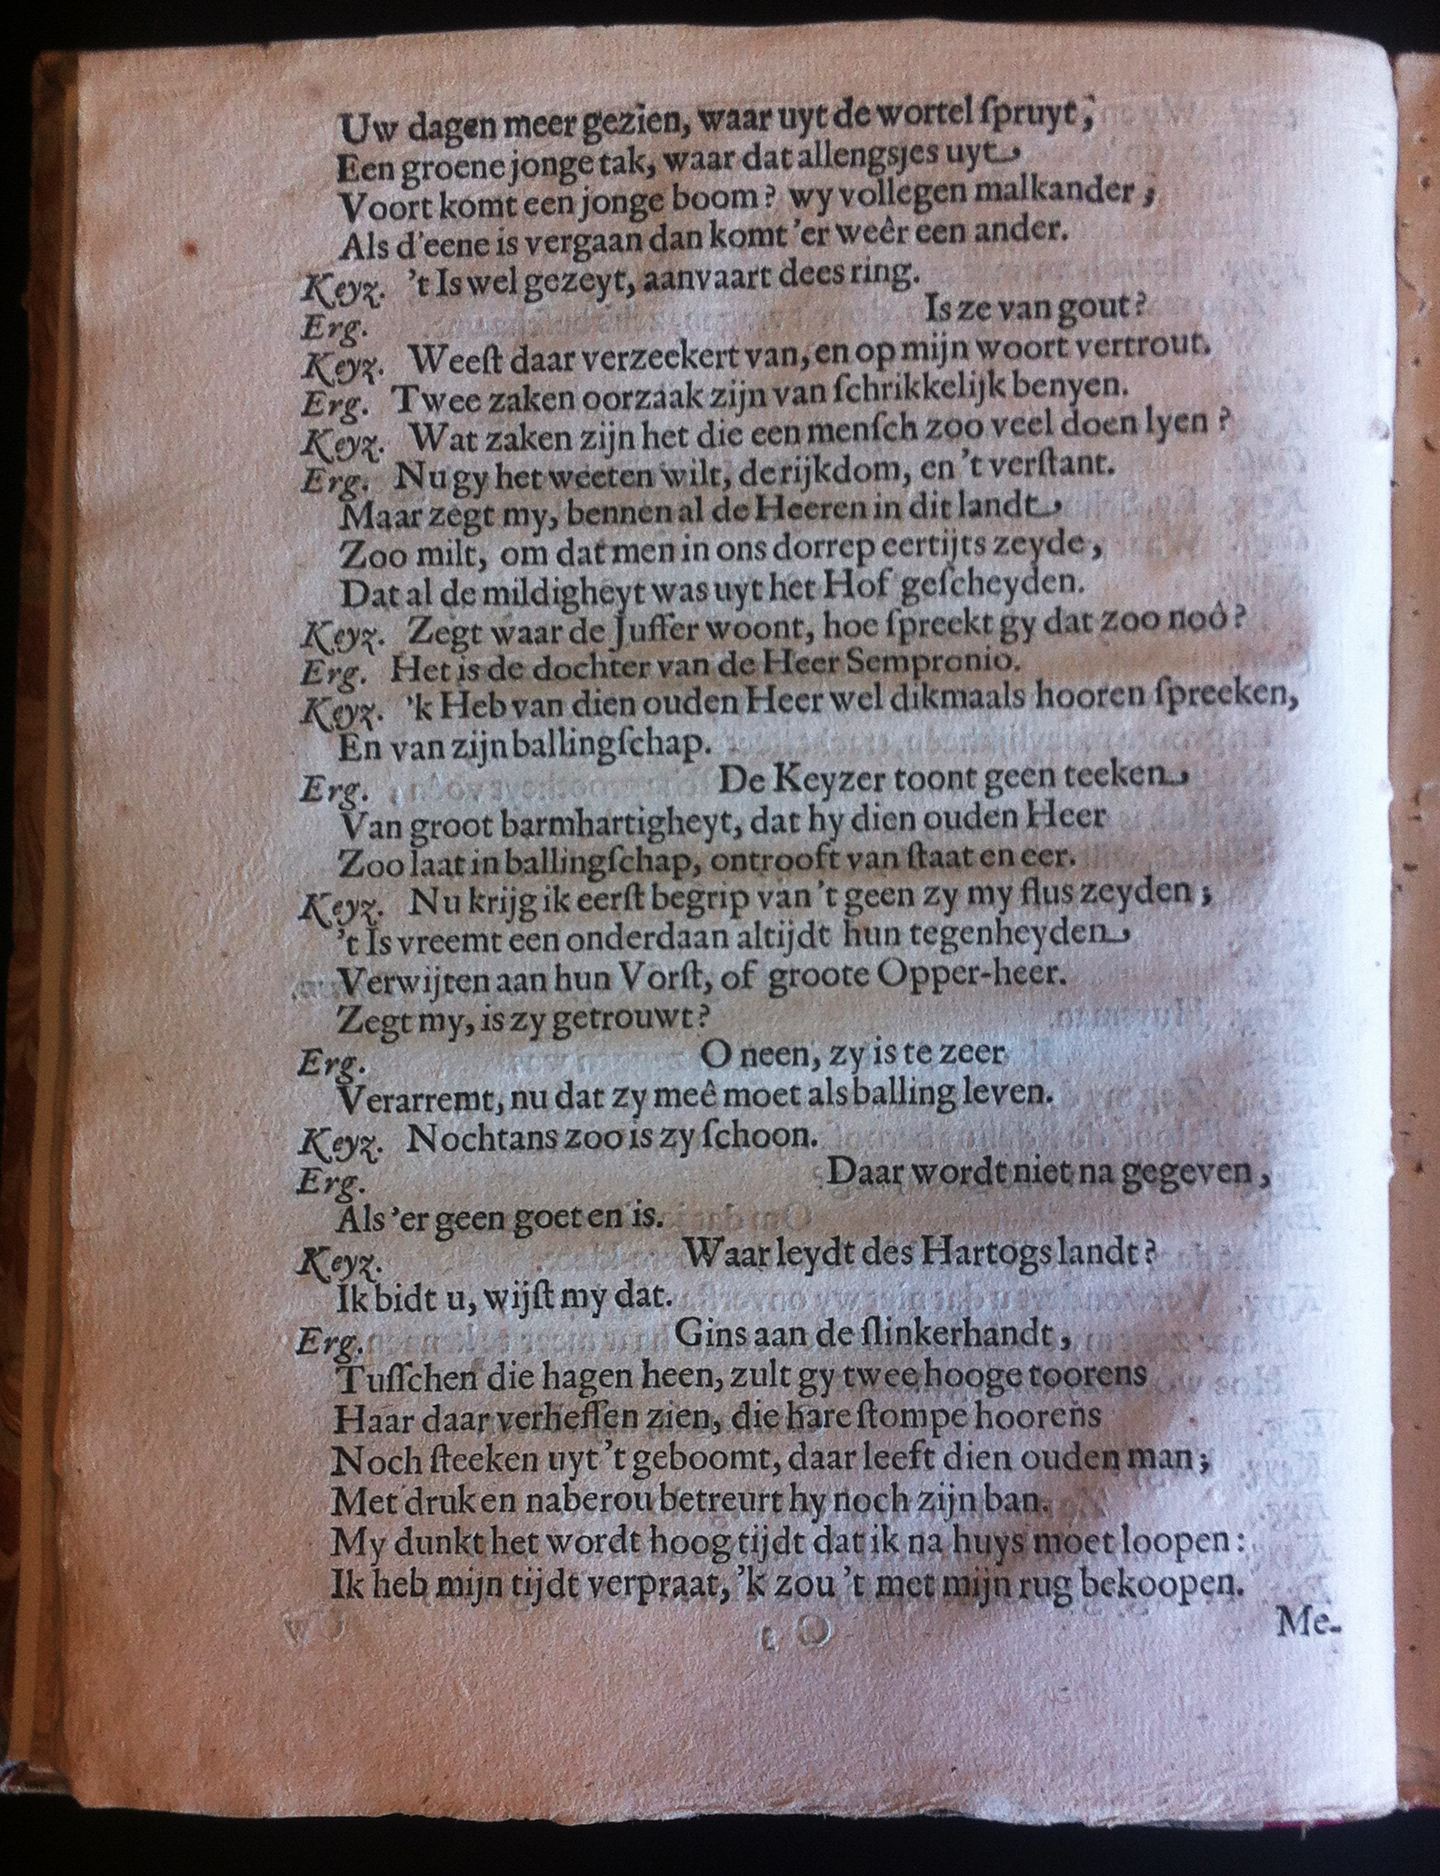 Uw dagen meer gezien, waar uyt de wortel ſpruyt;
Een groene jonge tak, waar dat allengsjes uyt
Voort komt een jonge boom? wy vollegen malkander;
Als d'eene is vergaan dan komt 'er weêr een ander.
Keyz. 't Is wel gezeyt, aanvaart dees ring.
Erg. Is ze van gout?
Keyz. Weeſt daar verzeekert van, en op mijn woort vertrout.
Erg. Twee zaken oorzaak zijn van ſchrikkelijk benyen.
Keyz. Wat zaken zijn het die een menſch zoo veel doen lyen?
Erg. Nu gy het weeten wilt, de rijkdom, en 't verſtant.
Maar zegt my, bennen al de Heeren in dit landt
Zoo milt, om dat men in ons dorrep eertijts zeyde,
Dat al de mildigheyt was uyt het Hof geſcheyden.
Keyz. Zegt waar de Juffer woont, hoe ſpreekt gy dat zoo noô?
Erg. Het is de dochter van de Heer Sempronio.
Keyz. 'k Heb van dien ouden Heer wel dikmaals hooren ſpreeken,
En van zijn ballingſchap.
Erg. De Keyzer toont geen teeken
Van groot barmhartigheyt, dat hy dien ouden Heer
Zoo laat in ballingſchap, ontrooft van ſtaat en eer.
Keyz. Nu krijg ik eerſt begrip van 't geen zy my flus zeyden;
't Is vreemt een onderdaan altijdt hun tegenheyden
Verwijten aan hun Vorſt, of groote Opper-heer.
Zegt my, is zy getrouwt?
Erg. O neen, zy is te zeer
Verarremt, nu dat zy meê moet als balling leven.
Keyz. Nochtans zoo is zy ſchoon.
Erg. Daar wordt niet na gegeven,
Als 'er geen goet en is.
Keyz. Waar leydt des Hartogs landt?
Ik bidt u, wijſt my dat.
Erg. Gins aan de ſlinkerhandt,
Tuſſchen die hagen heen, zult gy twee hooge toorens
Haar daar verheffen zien, die hare ſtompe hoorens
Noch ſteeken uyt 't geboomt, daar leeft dien ouden man;
Met druk en naberou betreurt hy noch zijn ban.
My dunkt het wordt hoog tijdt dat ik na huys moet loopen:
Ik heb mijn tijdt verpraat, 'k zou 't met mijn rug bekoopen.
Me-